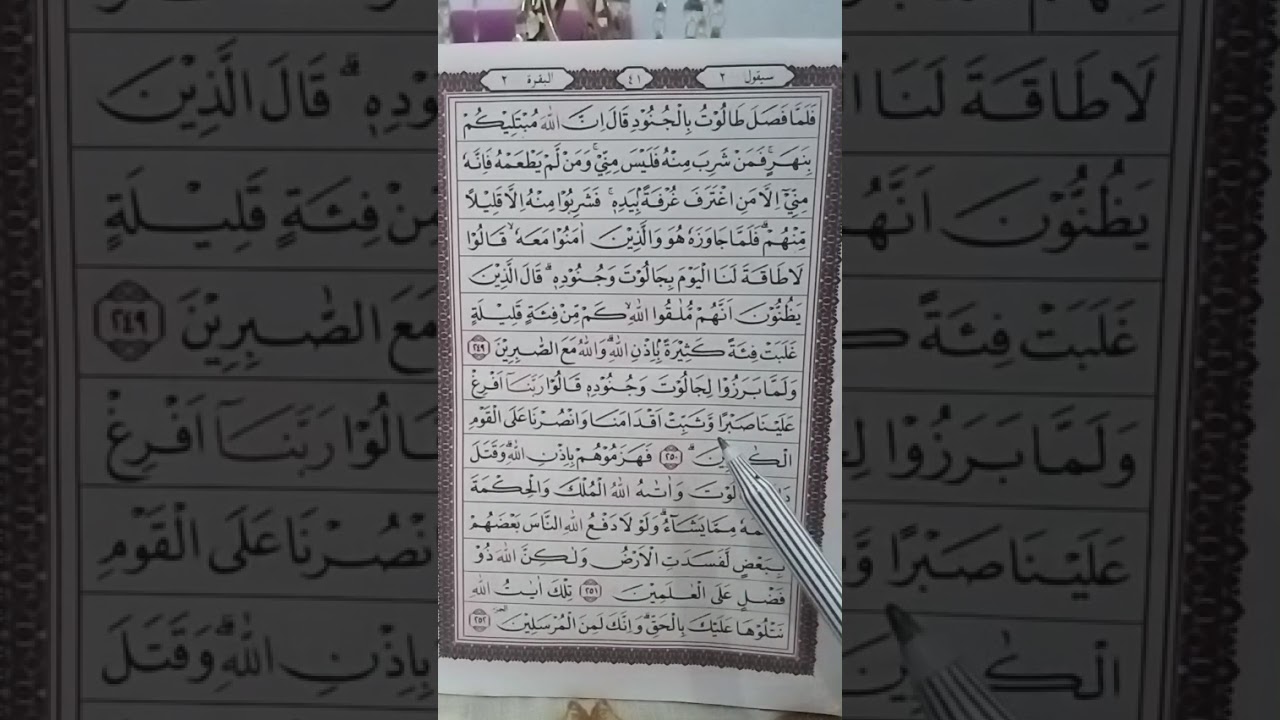 سيقول ٢
٤١
البقرة ٢
فَلَمَّا فَصَلَ طَالُوْتُ بِالْجُنُوْدِ قَالَ اِنَّ اللّٰهَ مُبْتَلِيْكُمْ
بِنَهَرٍۚ فَمَنْ شَرِبَ مِنْهُ فَلَيْسَ مِنِّيْۚ وَمَنْ لَّمْ يَطْعَمْهُ فَاِنَّهٗ
مِنِّيْٓ اِلَّا مَنِ اغْتَرَفَ غُرْفَةً ۢبِيَدِهٖۚ فَشَرِبُوْا مِنْهُ اِلَّا قَلِيْلًا
مِّنْهُمْۗ فَلَمَّا جَاوَزَهٗ هُوَ وَالَّذِيْنَ اٰمَنُوْا مَعَهٗۙ قَالُوْا
لَا طَاقَةَ لَنَا الْيَوْمَ بِجَالُوْتَ وَجُنُوْدِهٖۗ قَالَ الَّذِيْنَ
يَظُنُّوْنَ اَنَّهُمْ مُّلٰقُوا اللّٰهِۙ كَمْ مِّنْ فِئَةٍ قَلِيْلَةٍ
غَلَبَتْ فِئَةً كَثِيْرَةً ۢبِاِذْنِ اللّٰهِۗ وَاللّٰهُ مَعَ الصّٰبِرِيْنَ ٢٤٩
وَلَمَّا بَرَزُوْا لِجَالُوْتَ وَجُنُوْدِهٖ قَالُوْا رَبَّنَآ اَفْرِغْ
عَلَيْنَا صَبْرًا وَّثَبِّتْ اَقْدَامَنَا وَانْصُرْنَا عَلَى الْقَوْمِ
ۗ ٢٥٠ فَهَزَمُوْهُمْ بِاِذْنِ اللّٰهِۗ وَقَتَلَ
وَاٰتٰىهُ اللّٰهُ الْمُلْكَ وَالْحِكْمَةَ
مِمَّا يَشَاۤءُۗ وَلَوْلَا دَفْعُ اللّٰهِ النَّاسَ بَعْضَهُمْ
بِبَعْضٍ لَّفَسَدَتِ الْاَرْضُ وَلٰكِنَّ اللّٰهَ ذُوْ
فَضْلٍ عَلَى الْعٰلَمِيْنَ ٢٥١ تِلْكَ اٰيٰتُ اللّٰهِ
نَتْلُوْهَا عَلَيْكَ بِالْحَقِّۗ وَاِنَّكَ لَمِنَ الْمُرْسَلِيْنَ ٢٥٢